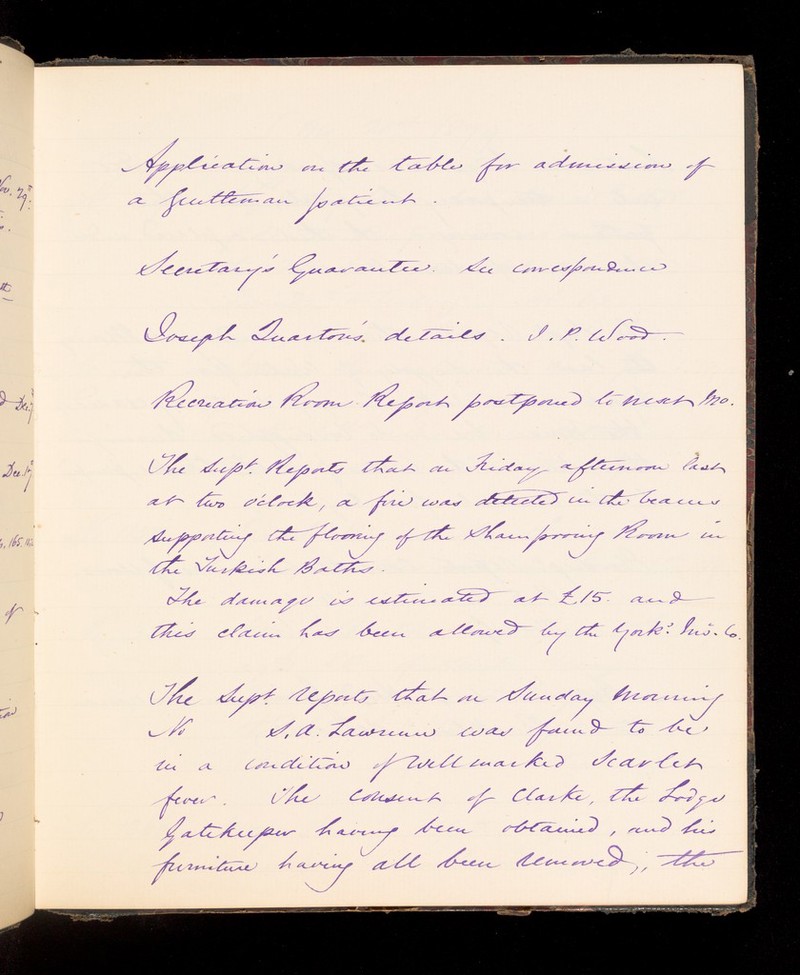 Application on the table for admission of
a Gentleman patient.
Secretary's Guarantee. See correspondence
Joseph Quarton's details. I. P. Wood.
Recreation Room Report postponed to next Mo.
The Supt. Reports that on Friday afternoon last
at two o'clock, a fire was detected in the beams
supporting the flooring of the Shampooing Room in
the Turkish Baths.
The damage is estimated at £15. and
this claim has been allowed by the Yorks. Ins. Co.
The Supt. reports that on Sunday Morning
No S. A. Lawrence was found to be
in a condition of well marked Scarlet
fever. The consent of Clarke, the Lodge
Gatekeeper having been obtained, and his
furniture having all been removed, the
Nov. 29
Dec. 17
165.
of